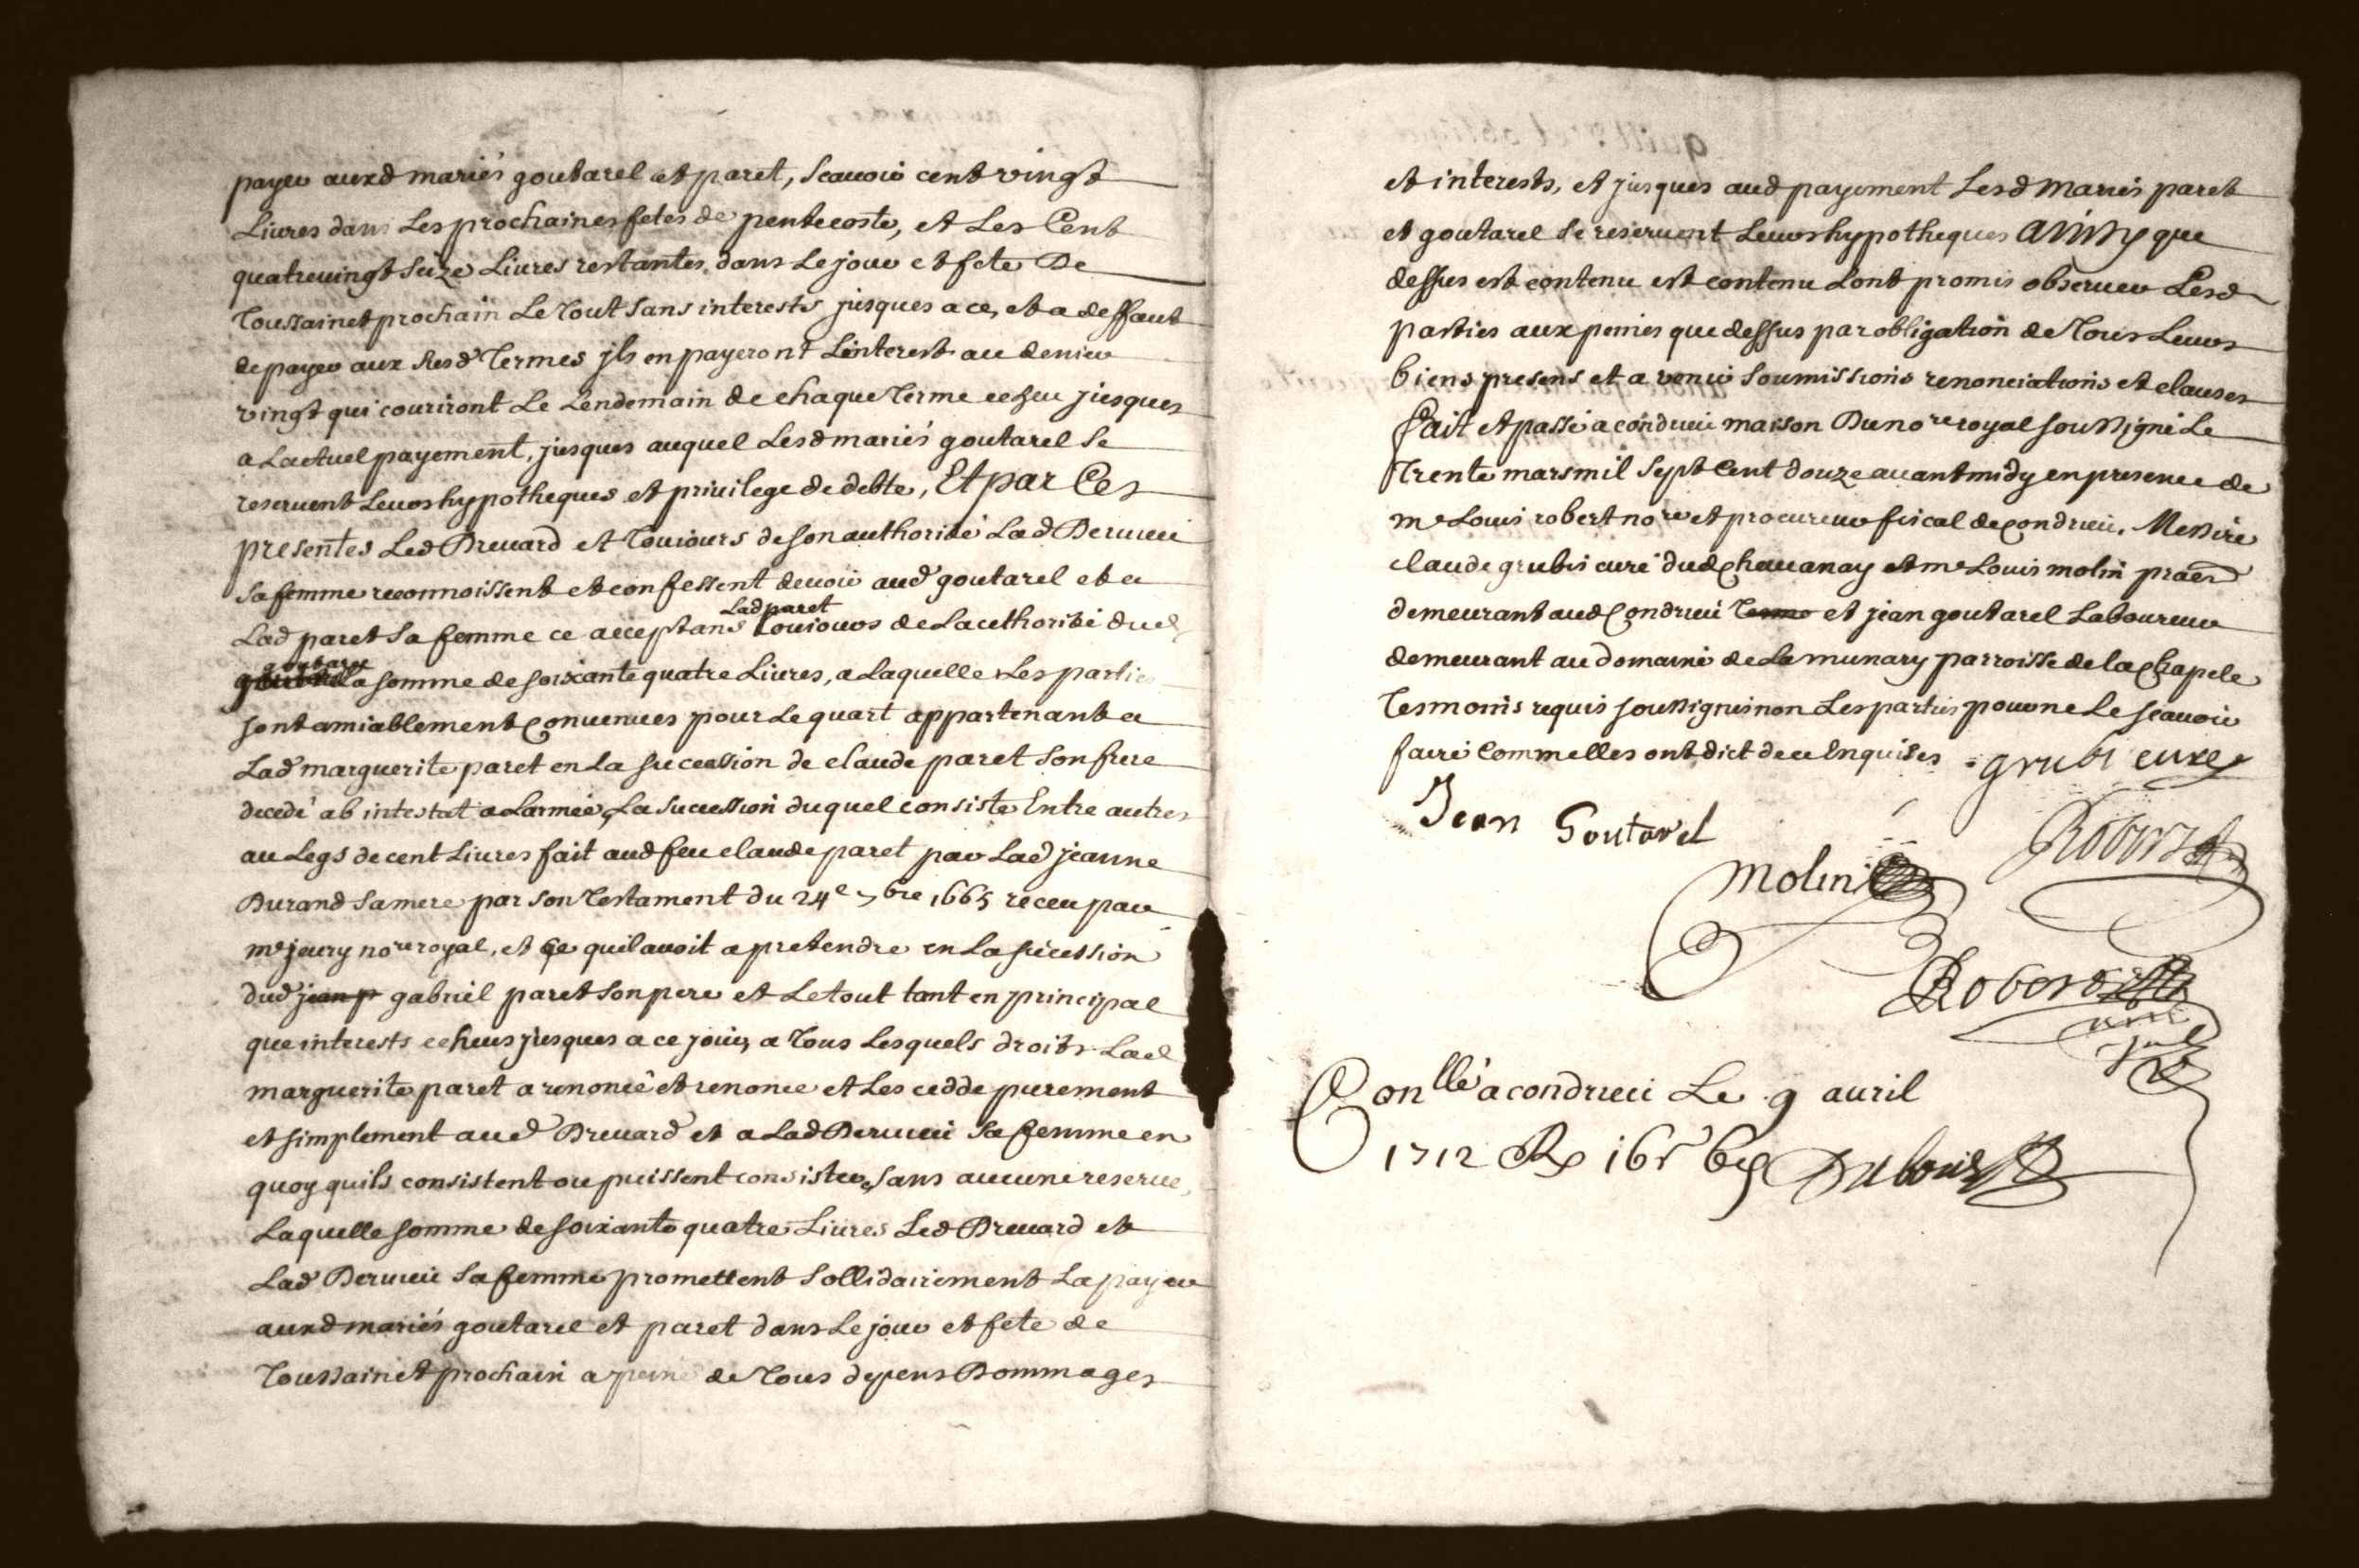 payer auxd mariés goutarel et paret, scauoir cent vingt
Liures dans Les prochaines fetes de pentecoste, et Les Cent
quatreuingt seize Liures restantes dans Le jour et fete De
Toussainct prochain Le Tout sans interests jusques a ce, et a deffaut
de payer aux susd Termes jls en payeront Linterest au denier
vingt qui couriront Le Lendemain de chaque Terme escheu jusques
a Lactuel payement, jusques auquel Lesd mariés goutarel se
reseruent Leurs hypotheques et priuilege de debte, Et par Ces
presentes Led Breuard et Toujours de son authorité Lad Deruieu
sa femme reconnoissent et confessent deuoir aud goutarel et a
Lad paret
Lad paret sa femme ce acceptans Toujours de Lauthorité dud
goutarel
la somme de soixante quatre Liures, a Laquelle Les parties
sont amiablement Conuenues pour Le quart appartenant a
Lad marguerite paret en La succession de claude paret son frere
decedé ab intestat a Larmée, La succession duquel consiste Entre autres
au Legs de cent Liures fait aud feu claude paret par Lad jeanne
Durand sa mere par son Testament du 24e 7bre 1665 receu par
me jeury nore royal, et ce quil auoit a pretendre en La succession
dud jean p gabriel paret son pere et Le tout tant en principal
que interests echeus jusques a ce jour, a Tous Lesquels droits Lad
marguerite paret a renoncé et renonce et Les cedde purement
et simplement aud Breuard et a Lad Deruieu sa femme en
quoy quils consistent ou puissent consister, sans aucune reserue,
Laquelle somme de soixante quatre Liures Led Breuard et
Lad Deruieu sa femme promettent sollidairement La payer
auxd mariés goutarel et paret dans Le jour et fete de
Toussainct prochain a peine de Tous depens Dommages
et interests, et jusques aud payement Lesd mariés paret
et goutarel se reseruent Leurs hypotheques Ainsy que
dessus est contenu est contenu Lont promis obseruer Lesd
parties aux peines que dessus par obligation de Tous Leurs
biens presens et a venir soumissions renonciations et clauses
fait et passé a condrieu maison Du nore royal soussigné Le
Trente mars mil sept Cent douze auant midy en presence de
me Louis robert nore et procureur fiscal de Condrieu, Messire
claude grubis curé dud Chauanay et me Louis molin praen
demeurant aud Condrieu et jean goutarel Laboureur
demeurant au domaine de Lamunary parroisse de la Chapele
Tesmoins requis soussignés non Les parties pour ne Le scauoir
faire Comme elles ont dict de ce Enquises grubi curé
Jean Goutarel
Robert
Molin
Robert
Conllé a condrieu Le 9 auril
1712 R 16s 6d Dubouis